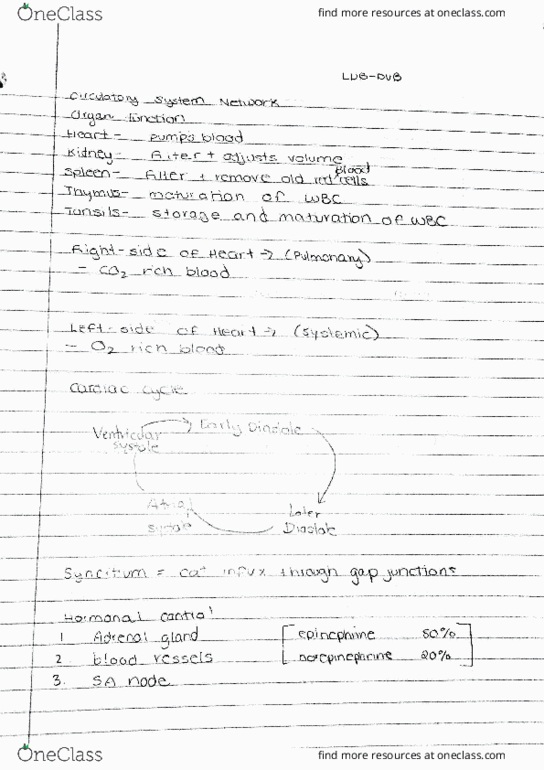 OneClass
find more resources at oneclass.com
LUB-DUB
Circulatory System Network
Organ function
Heart - pumps blood
Kidney - Filter + adjusts volume
Spleen - Filter + remove old red blood cells
Thymus - maturation of WBC
Tonsils - storage and maturation of WBC
Right-side of Heart → (Pulmonary)
- CO2 rich blood
Left-side of Heart → (Systemic)
- O2 rich blood
Cardiac cycle
Ventricular systole → Early Diastole
Atrial systole
Later Diastole
Syncitum = Ca+ influx through gap junctions
Hormonal control
1 Adrenal gland [epinephrine 80%
2 blood vessels norepinephrine 20%]
3. SA node
OneClass
find more resources at oneclass.com